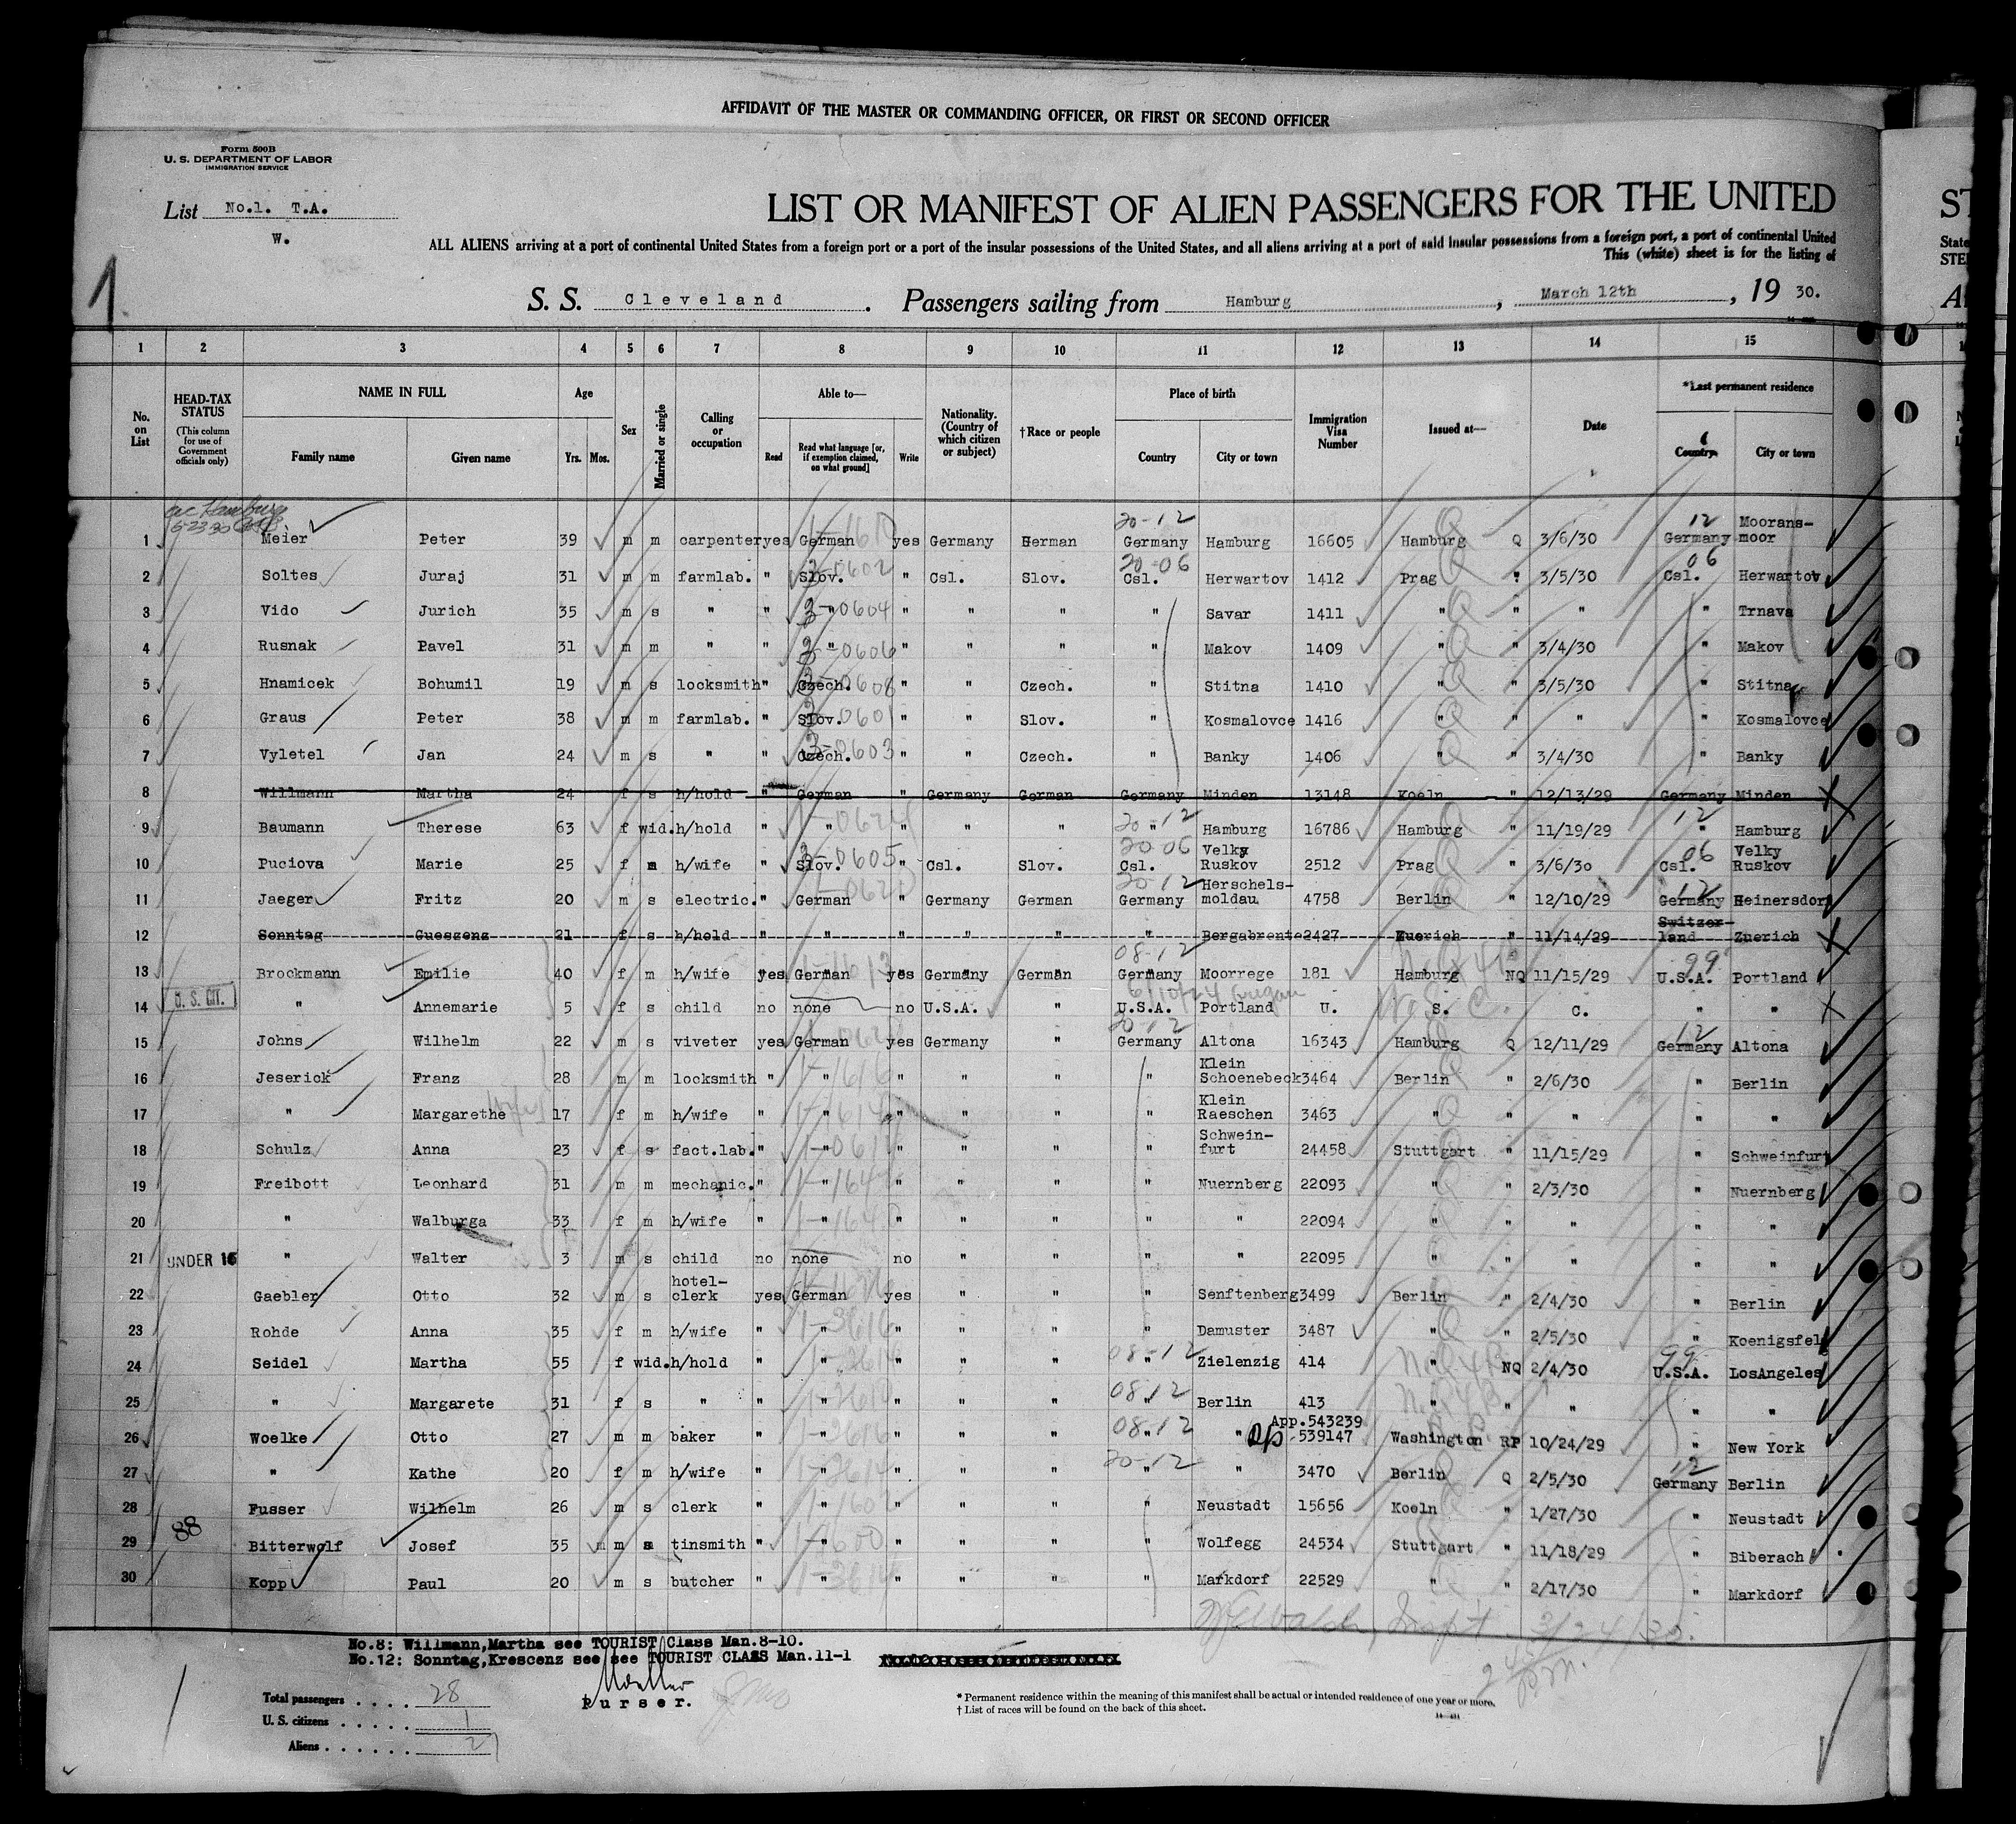 AFFIDAVIT OF THE MASTER OR COMMANDING OFFICER, OR FIRST OR SECOND OFFICER
Form 500B
U. S. DEPARTMENT OF LABOR
IMMIGRATION SERVICE
List No.1. T.A.
W.
LIST OR MANIFEST OF ALIEN PASSENGERS FOR THE UNITED
ALL ALIENS arriving at a port of continental United States from a foreign port or a port of the insular possessions of the United States, and all aliens arriving at a port of said insular possessions from a foreign port, a port of continental United
This (white) sheet is for the listing of
1
S. S. Cleveland. Passengers sailing from Hamburg, March 12th, 19 30.
1 2 3 4 5 6 7 8 9 10 11 12 13 14 15
No. on List HEAD-TAX STATUS (This column for use of Government officials only) NAME IN FULL Family name Given name Age Yrs. Mos. Sex Married or single Calling or occupation Able to— Read Read what language [or, if exemption claimed, on what ground] Write Nationality. (Country of which citizen or subject) †Race or people Place of birth Country City or town Immigration Visa Number Issued at— Date *Last permanent residence Country City or town
1 Meier Peter 39 m m carpenter yes German yes Germany German 20-12 Germany Hamburg 16605 Hamburg Q 3/6/30 12 Germany Moorans-moor
2 Soltes Juraj 31 m m farmlab. " Slov. " Csl. Slov. 20-06 Csl. Herwartov 1412 Prag " 3/5/30 06 Csl. Herwartov
3 Vido Jurich 35 m s " " " " " " " Savar 1411 " " " " Trnava
4 Rusnak Pavel 31 m m " " " " " " " Makov 1409 " " 3/4/30 " Makov
5 Hnamicek Bohumil 19 m s locksmith " Czech. " " Czech. " Stitna 1410 " " 3/5/30 " Stitna
6 Graus Peter 38 m m farmlab. " Slov. " " Slov. " Kosmalovce 1416 " " " " Kosmalovce
7 Vyletel Jan 24 m s " " Czech. " " Czech. " Banky 1406 " " 3/4/30 " Banky
8 Willmann Martha 24 f s h/hold " German " Germany German Germany Minden 13148 Koeln " 12/13/29 Germany Minden
9 Baumann Therese 63 f wid. h/hold " " " " " 20-12 " Hamburg 16786 Hamburg " 11/19/29 12 " Hamburg
10 Puciova Marie 25 f m h/wife " Slov. " Csl. Slov. 20-06 Csl. Velky Ruskov 2512 Prag " 3/6/30 06 Csl. Velky Ruskov
11 Jaeger Fritz 20 m s electric. " German " Germany German 20-12 Germany Herschels-moldau 4758 Berlin " 12/10/29 12 Germany Heinersdorf
12 Sonntag Gueszenz 21 f s h/hold " " " " " " Bergabrente 2427 Zuerich " 11/14/29 Switzer-land Zuerich
13 Brockmann Emilie 40 f m h/wife yes German yes Germany German 08-12 Germany Moorrege 181 Hamburg NQ 11/15/29 99 U.S.A. Portland
14 U. S. CIT. " Annemarie 5 f s child no none no U.S.A. " U.S.A. Portland U. S. C. " "
15 Johns Wilhelm 22 m s viveter yes German yes Germany " 20-12 Germany Altona 16343 Hamburg Q 12/11/29 12 Germany Altona
16 Jeserick Franz 28 m m locksmith " " " " " " Klein Schoenebeck 3464 Berlin " 2/6/30 " Berlin
17 " Margarethe 17 f m h/wife " " " " " " Klein Raeschen 3463 " " " " "
18 Schulz Anna 23 f s fact.lab. " " " " " " Schwein-furt 24458 Stuttgart " 11/15/29 " Schweinfurt
19 Freibott Leonhard 31 m m mechanic. " " " " " " Nuernberg 22093 " " 2/3/30 " Nuernberg
20 " Walburga 33 f m h/wife " " " " " " " 22094 " " " " "
21 UNDER 16 " Walter 3 m s child no none no " " " " 22095 " " " " "
22 Gaebler Otto 32 m s hotel-clerk yes German yes " " " Senftenberg 3499 Berlin " 2/4/30 " Berlin
23 Rohde Anna 35 f m h/wife " " " " " " Damuster 3487 " " 2/5/30 " Koenigsfeld
24 Seidel Martha 55 f wid. h/hold " " " " " 08-12 Zielenzig 414 " NQ 2/4/30 99 U.S.A. LosAngeles
25 " Margarete 31 f s " " " " " " 08-12 " Berlin 413 " " " " "
26 Woelke Otto 27 m m baker " " " " " 08-12 " " App.543239 539147 Washington RP 10/24/29 " New York
27 " Kathe 20 f m h/wife " " " " " 20-12 " " 3470 Berlin Q 2/5/30 12 Germany Berlin
28 Fusser Wilhelm 26 m s clerk " " " " " " Neustadt 15656 Koeln " 1/27/30 " Neustadt
29 88 Bitterwolf Josef 35 m s tinsmith " " " " " " Wolfegg 24534 Stuttgart " 11/18/29 " Biberach
30 Kopp Paul 20 m s butcher " " " " " " Markdorf 22529 " " 2/17/30 " Markdorf
3/24/30.
No.8: Willmann,Martha see TOURIST Class Man.8-10.
No.12: Sonntag,Krescenz see see TOURIST CLASS Man.11-1
Moeller
Purser.
Total passengers . . . . 28
U. S. citizens . . . . . 1
Aliens . . . . . . 27
* Permanent residence within the meaning of this manifest shall be actual or intended residence of one year or more.
† List of races will be found on the back of this sheet.